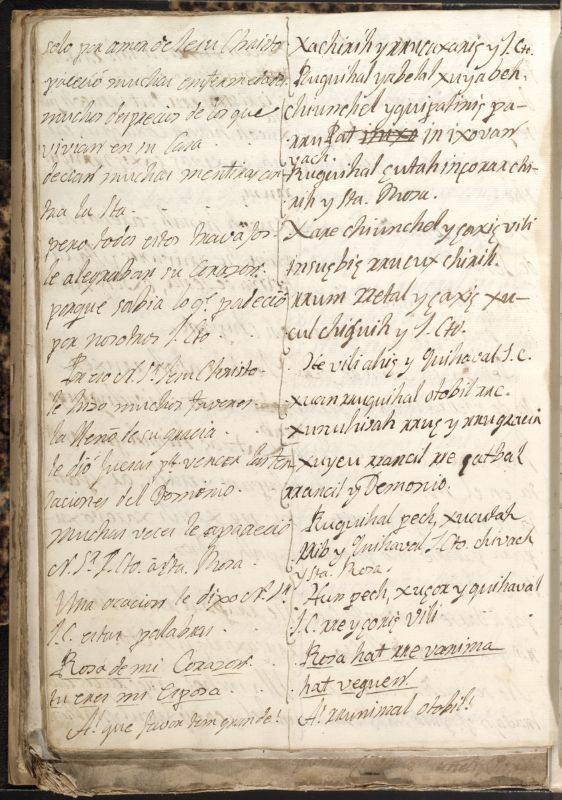 solo por amor de Jesu Christo
padeció muchas enfermedades
muchos desprecios de los que
vivian en su Casa.
decian muchas mentiras con-
tra la Sta.
pero todos estos travajos
le alegraban su Corazon.
porque sabia lo q.e padeció
por nosotros J. Cto.
Por eso N. Sr. Jesu Christo
le hizo muchos favores
la lleno de su gracia.
le dió fuerzas pa. vencer las ten-
taciones del Demonio.
muchas veces le aparecio
N. Sr. J. Cto. á Sta. Rosa.
Una ocacion le dixo N. Sr.
J. C. estas palabras.
Rosa de mi Corazon.
tu eres mi Esposa.
A! que favor tan grande!
Xachirih y rrucuxaniç y J. Cto.
Ruquihal yabehal xuyabeh.
chiunchel yquipalinic pa-
rru Pat in ixovan
vach.
Ruquihal çutah inçonan chi-
rih y Sta. Rosa.
Xare chiunchel y çaxiç vili
insuçbiç rrucux chirih.
rrum retal y çaxiç xu-
cul chiquih y J. Cto.
He vili ahiç y Quihaval J. C.
xuan rruquihal otobil rre.
xunuhisah rruç y rrugracia
xuyeu rrancil rre qatbal
rrancil y Demonio.
Ruquihal pech, xucutah
rrib y Quihaval J. Cto. chivach
y Sta. Rosa.
Hun pech, xuçor y quihaval
J. C. rre y çoriç vili
Rosa hat rre vanima
hat veguen.
A! rrunimal otobil!